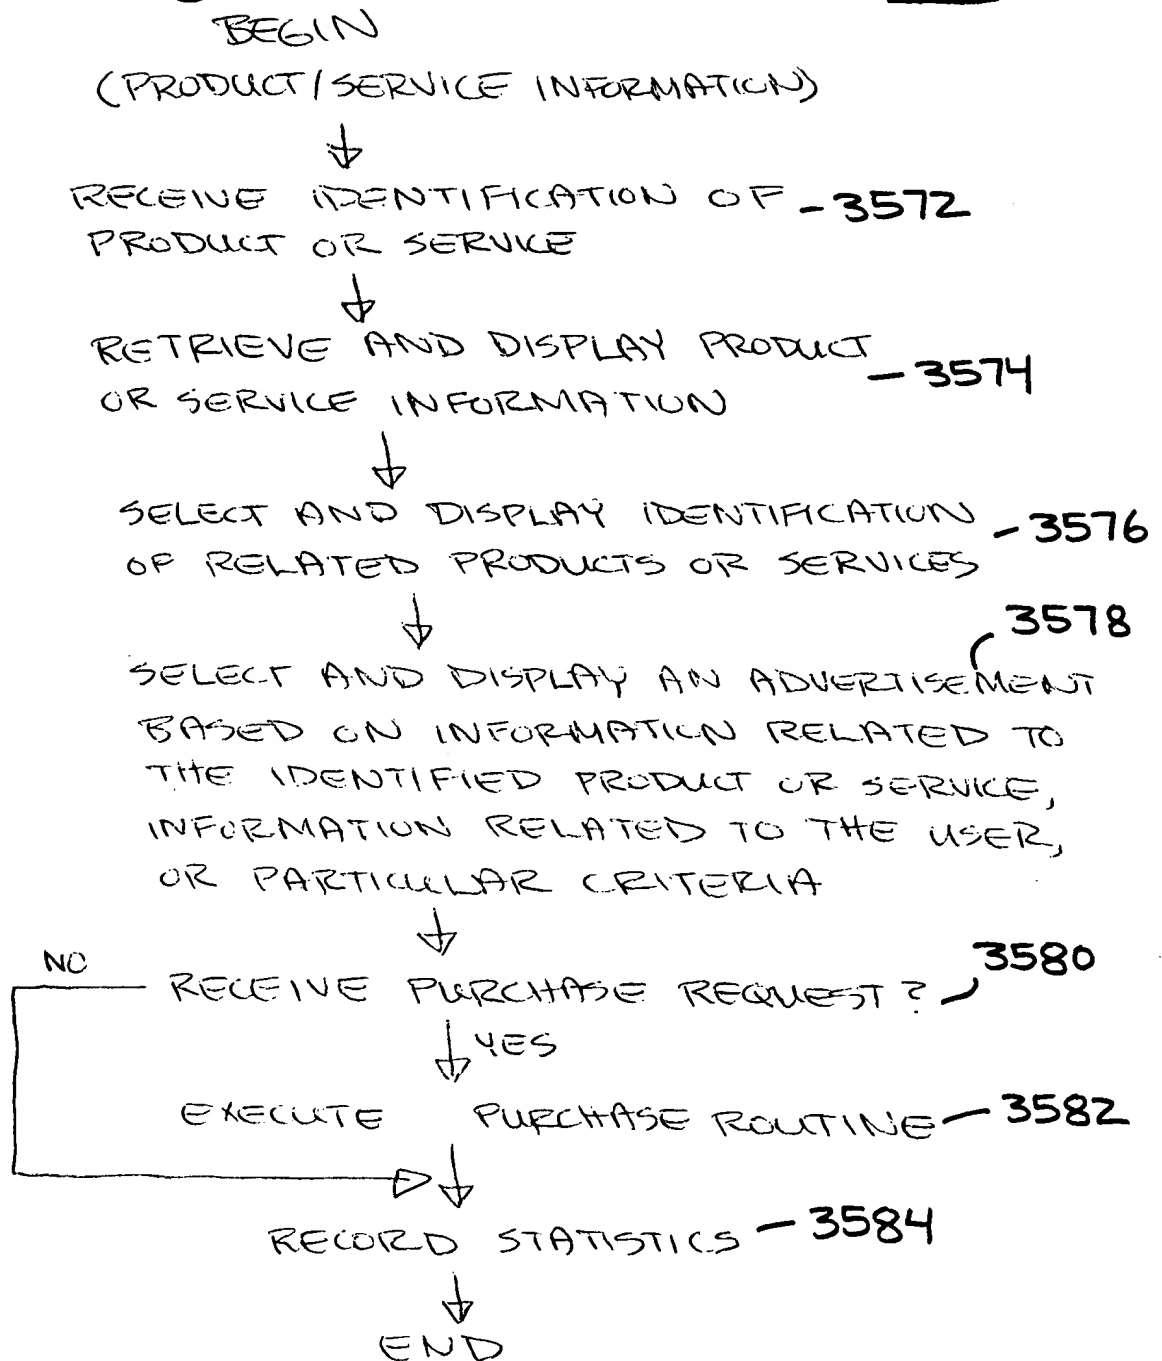 BEGIN
(PRODUCT/SERVICE INFORMATION)
RECEIVE IDENTIFICATION OF - 3572
PRODUCT OR SERVICE
RETRIEVE AND DISPLAY PRODUCT
OR SERVICE INFORMATION - 3574
SELECT AND DISPLAY IDENTIFICATION - 3576
OF RELATED PRODUCTS OR SERVICES
3578
SELECT AND DISPLAY AN ADVERTISEMENT
BASED ON INFORMATION RELATED TO
THE IDENTIFIED PRODUCT OR SERVICE,
INFORMATION RELATED TO THE USER,
OR PARTICULAR CRITERIA
3580
NO RECEIVE PURCHASE REQUEST?
YES
EXECUTE PURCHASE ROUTINE - 3582
RECORD STATISTICS - 3584
END